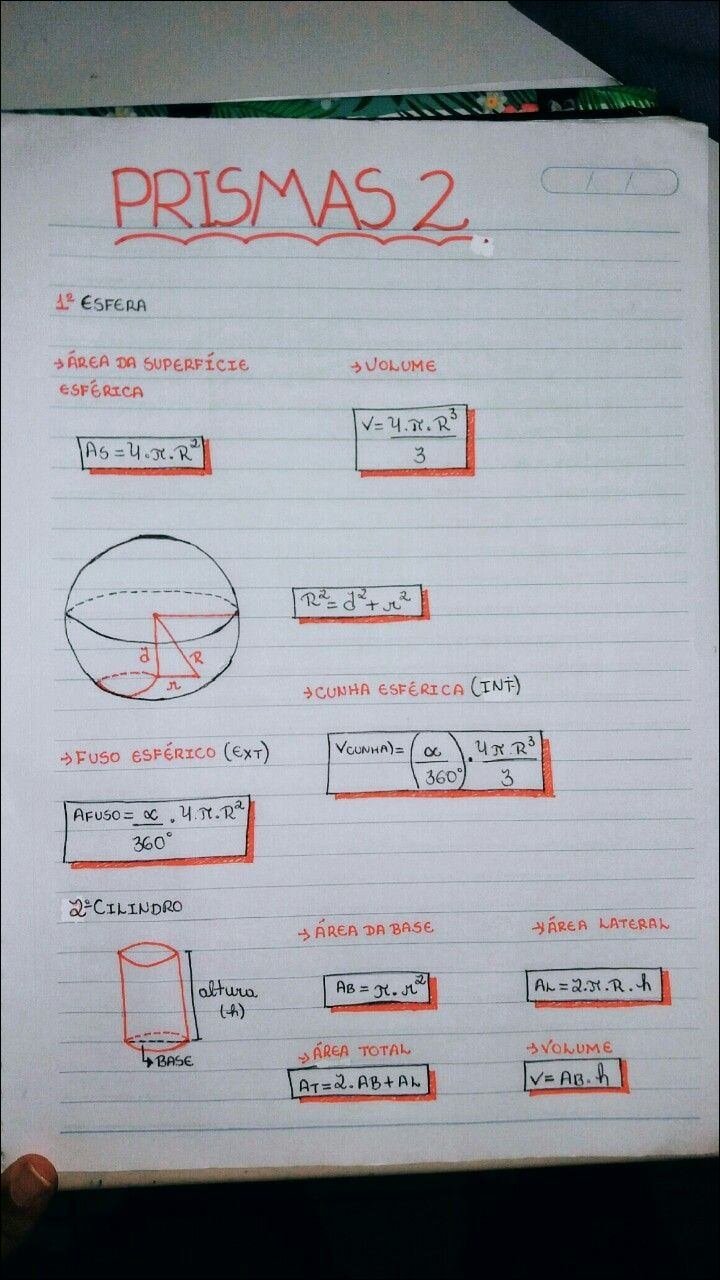 PRISMAS 2
/ /
1º ESFERA
→ÁREA DA SUPERFÍCIE
ESFÉRICA
AS = 4.π.R²
→VOLUME
V= 4.π.R³
3
d
R
r
R²=d²+r²
→CUNHA ESFÉRICA (INT)
VCUNHA)= (α/360°) . 4πR³/3
→FUSO ESFÉRICO (EXT)
AFUSO= α . 4.π.R²
360°
2º CILINDRO
altura
(h)
→BASE
→ÁREA DA BASE
AB = π.r²
→ÁREA LATERAL
AL=2.π.R.h
→ÁREA TOTAL
AT=2.AB+AL
→VOLUME
V= AB.h